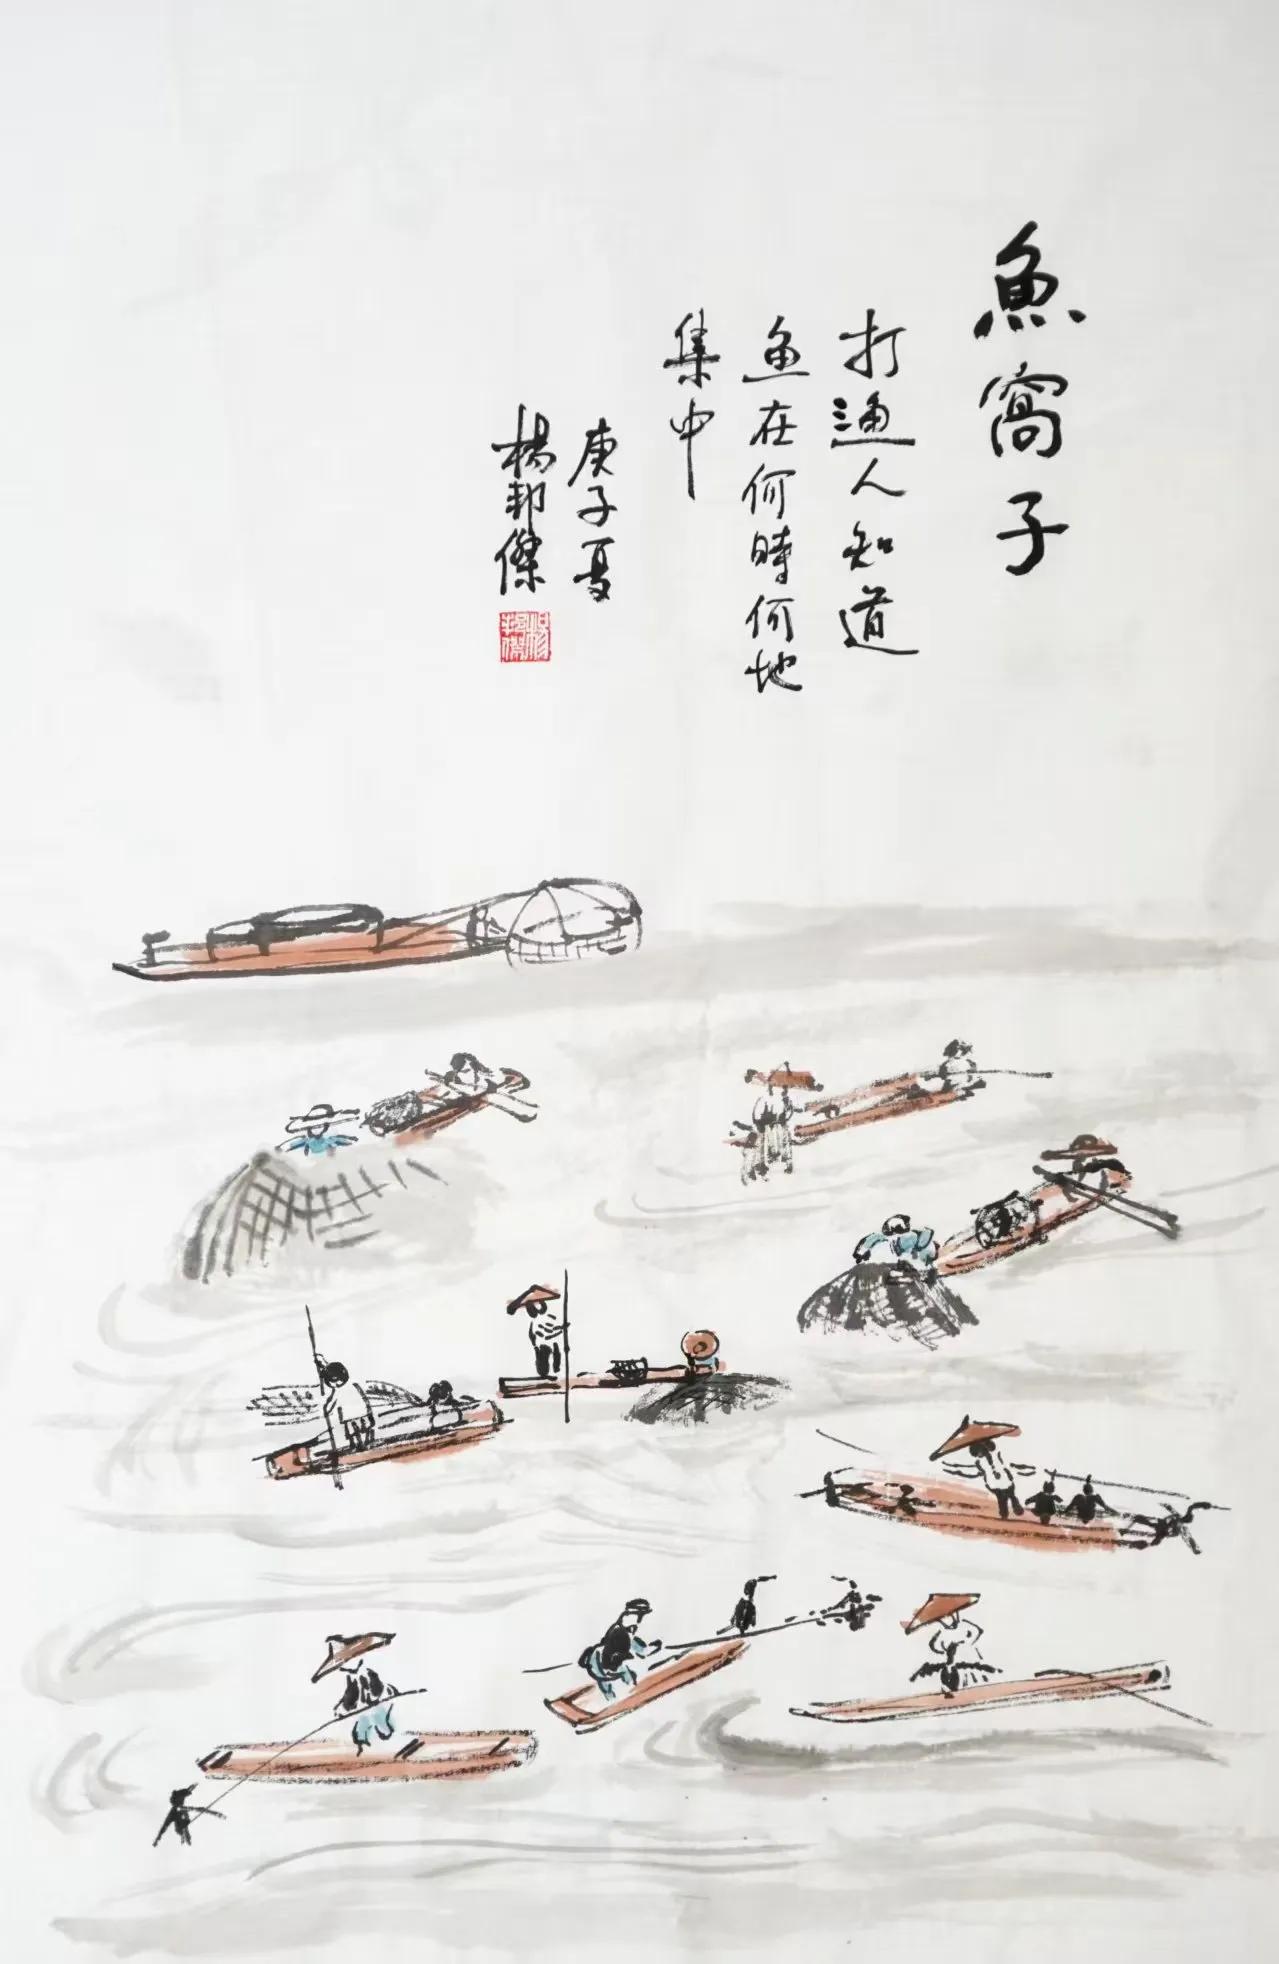 魚窩子
打漁人知道
鱼在何時何地
集中
庚子夏
楊邦傑
楊邦傑